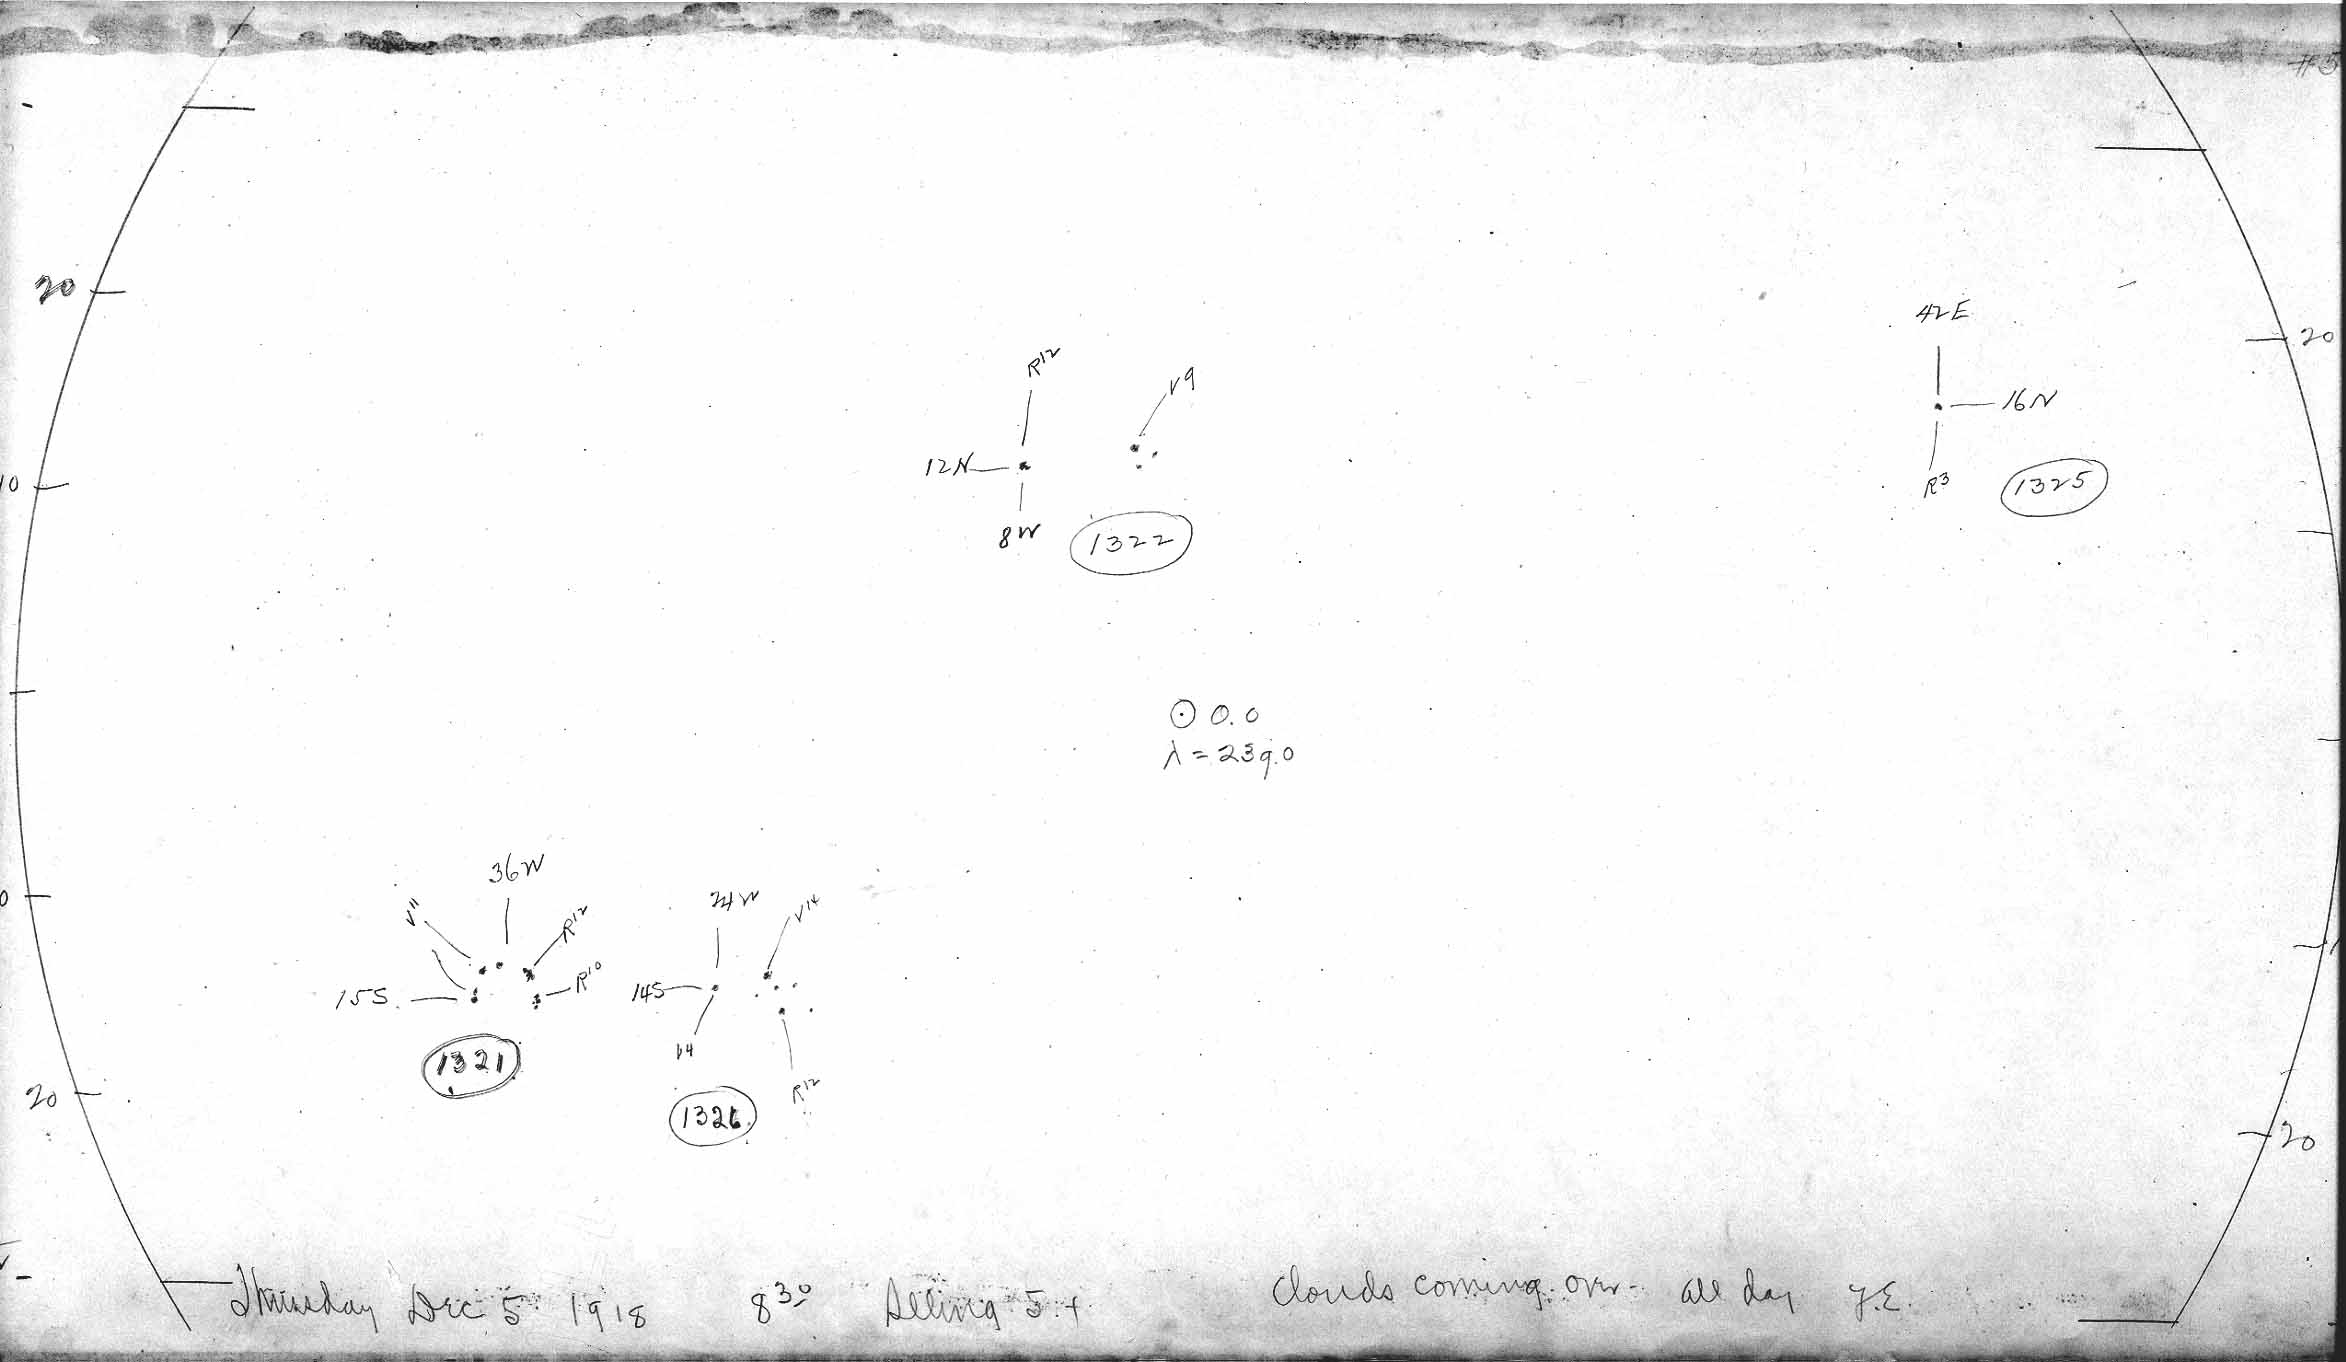 #5
20
20
42E
R12
V9
16N
12N
R3
1325
10
8W
1322
⊙ 0.0
λ = 239.0
36W
0
24W
V14
V11
R12
R10
15S.
14S
V4
1321
20
R12
1326
20
Thursday Dec 5 1918 8 30 Seeing 5 + Clouds coming over - all day F.E.